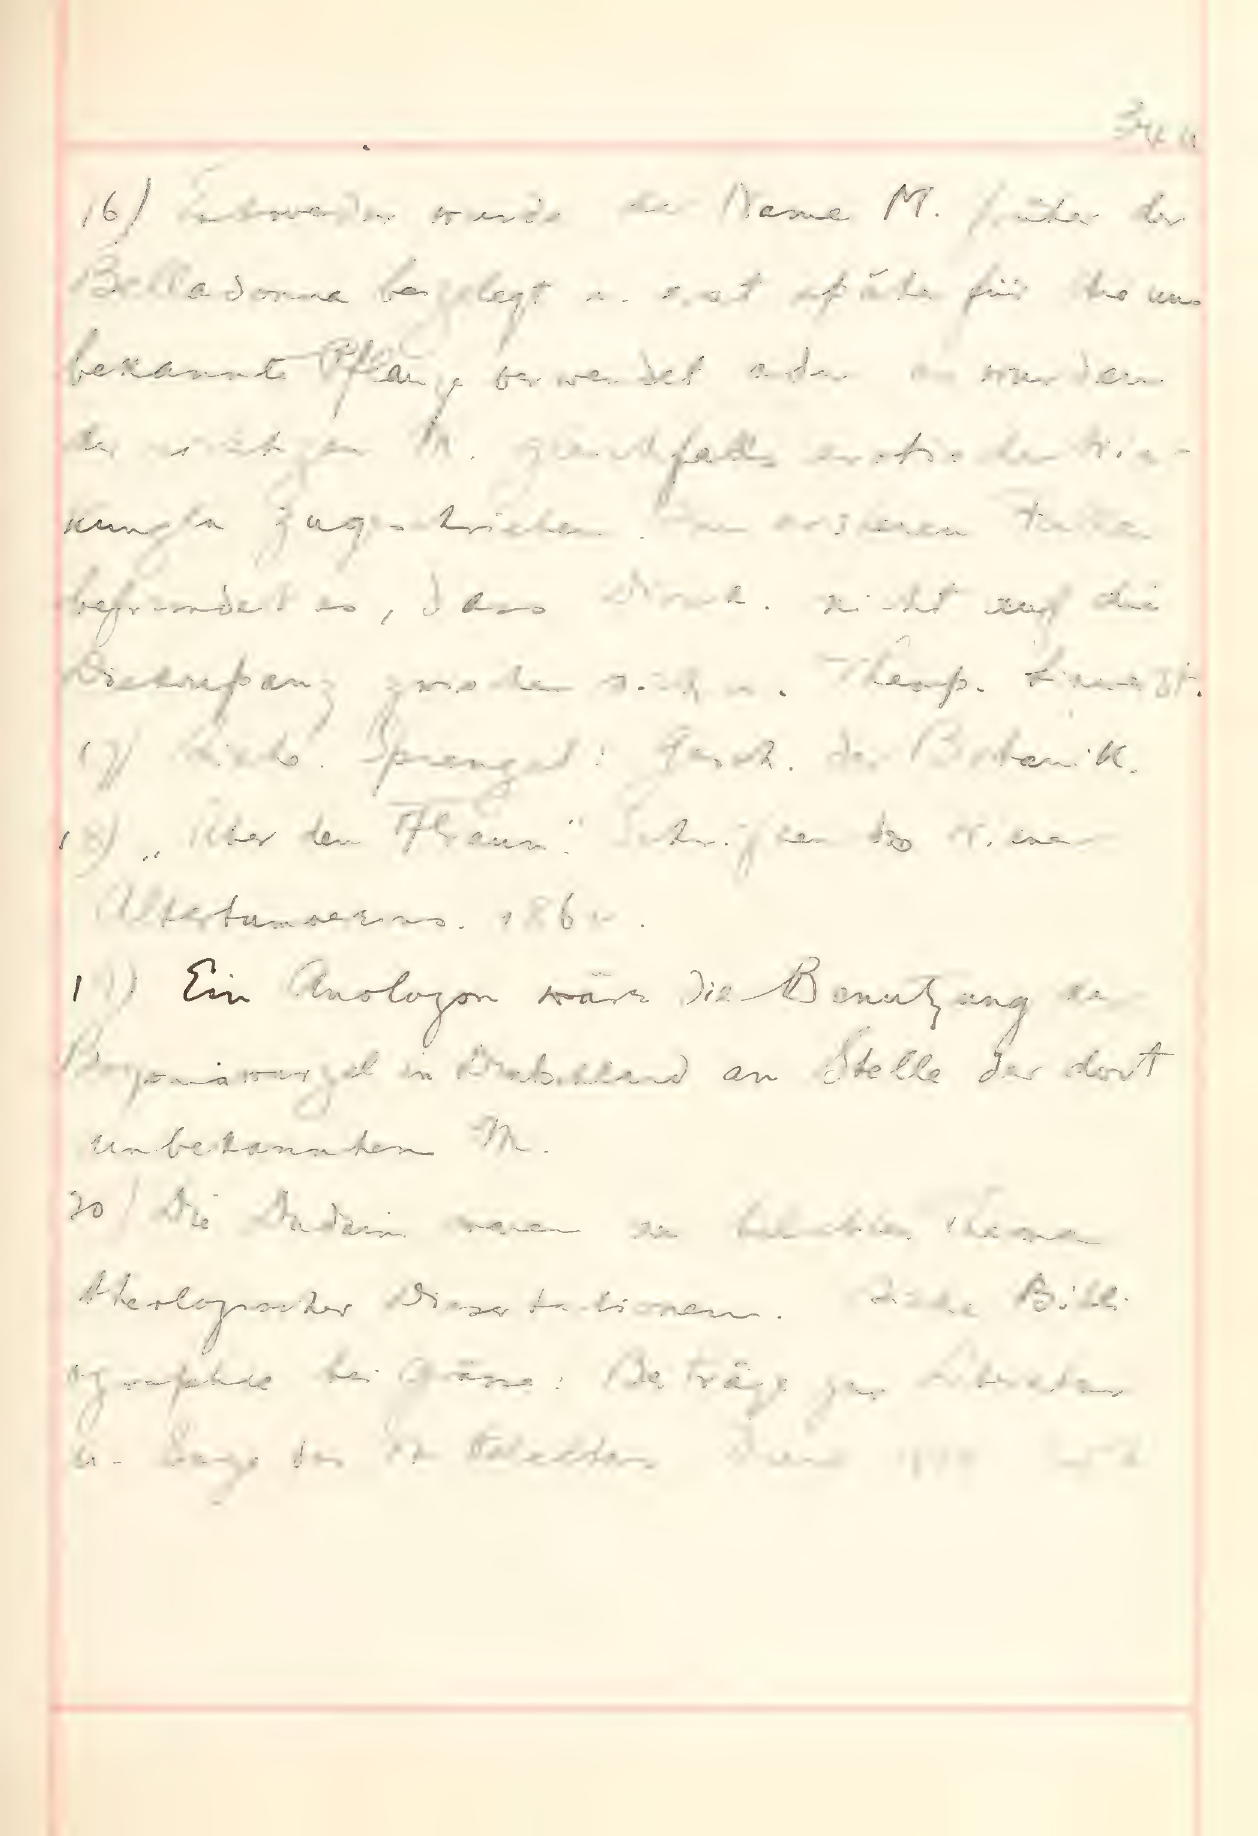 16) Entweder wurde der Name M. früher der
Belladonna beigelegt u. erst später für die uns
bekannte Pflanze verwendet oder es wurden
der richtigen M. gleichfalls erotische Wir-
kungen zugeschrieben. Im ersteren Falle
befremdet es, dass Diosk. nicht auf die
Diskrepanz zwischen sich u. Theop. hinweist.
17) Siehe Sprengel: Gesch. der Botanik.
18) „Über den Alraun." Schriften des Wiener
Altertumvereins. 186
19) Ein Analogon wäre die Benutzung der
Bryoniawurzel in Deutschland an Stelle der dort
unbekannten M.
20) Die Dudaim waren ein beliebtes Thema
theologischer Dissertationen. Siehe Bibli
ographie bei Grässe: Beiträge zur Literatur
u. Sage des Mittelalters